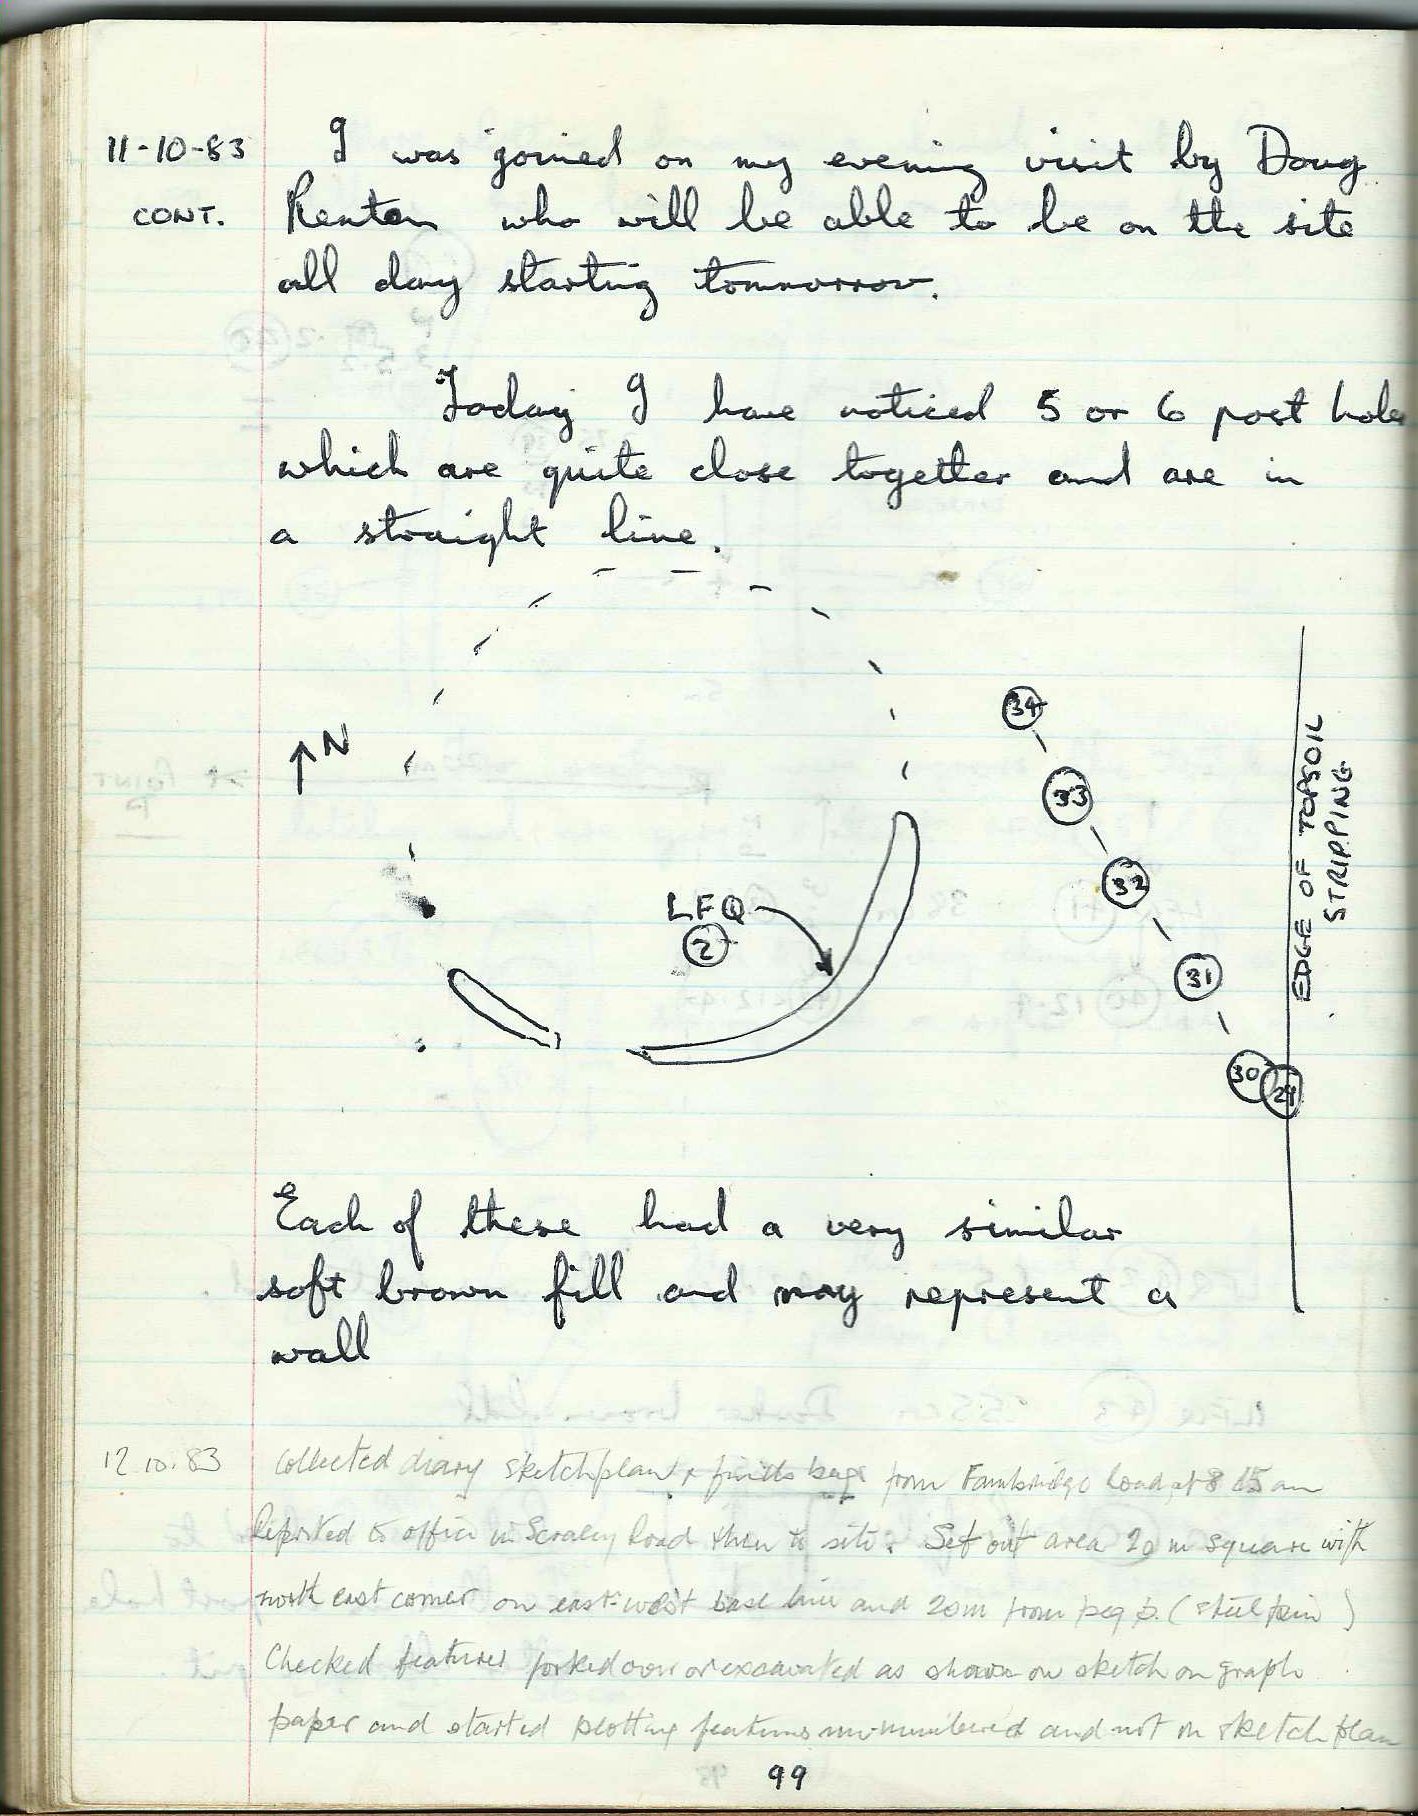 11-10-83 I was joined on my evening visit by Doug
CONT. Renton who will be able to be on the site
all day starting tommorrow.
Today I have noticed 5 or 6 post holes
which are quite close together and are in
a straight line.
↑N
34
33
32
31
30
29
LFQ
2
EDGE OF TOPSOIL
STRIPPING
Each of these had a very similar
soft brown fill and may represent a
wall
12.10.83 Collected diary sketch plan + finds bags from Fambridge Road at 8 15 am
Reported to office in Scraley Road then to site. Set out area 20 m square with
north east corner on east-west base line and 20m from peg p. (steel pin)
Checked features forked over or excavated as shown on sketch on graph
paper and started plotting features un-numbered and not on sketch plan
99